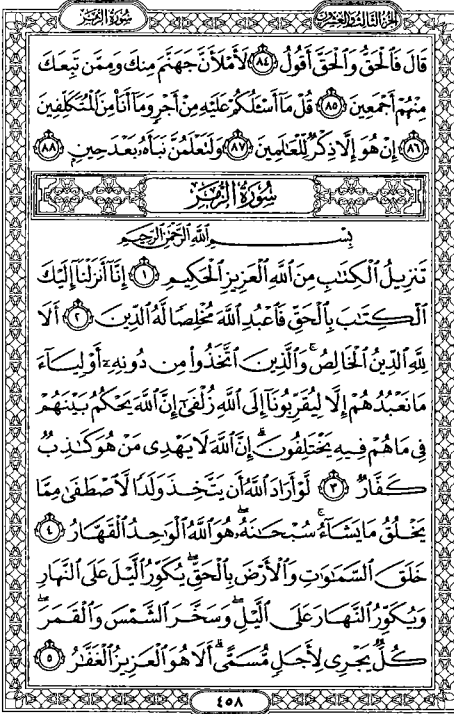 سُورَةُ الزُّمَرِ
الجُزْءُ الثَّالِثُ وَالعِشْرُونَ
قَالَ فَٱلْحَقُّ وَٱلْحَقَّ أَقُولُ ٨٤ لَأَمْلَأَنَّ جَهَنَّمَ مِنكَ وَمِمَّن تَبِعَكَ
مِنْهُمْ أَجْمَعِينَ ٨٥ قُلْ مَآ أَسْـَٔلُكُمْ عَلَيْهِ مِنْ أَجْرٍ وَمَآ أَنَا۠ مِنَ ٱلْمُتَكَلِّفِينَ
٨٦ إِنْ هُوَ إِلَّا ذِكْرٌ لِّلْعَٰلَمِينَ ٨٧ وَلَتَعْلَمُنَّ نَبَأَهُۥ بَعْدَ حِينٍۭ ٨٨
سُورَةُ الزُّمَرِ
بِسْمِ ٱللَّهِ ٱلرَّحْمَٰنِ ٱلرَّحِيمِ
تَنزِيلُ ٱلْكِتَٰبِ مِنَ ٱللَّهِ ٱلْعَزِيزِ ٱلْحَكِيمِ ١ إِنَّآ أَنزَلْنَآ إِلَيْكَ
ٱلْكِتَٰبَ بِٱلْحَقِّ فَٱعْبُدِ ٱللَّهَ مُخْلِصًا لَّهُ ٱلدِّينَ ٢ أَلَا
لِلَّهِ ٱلدِّينُ ٱلْخَالِصُ ۚ وَٱلَّذِينَ ٱتَّخَذُوا۟ مِن دُونِهِۦٓ أَوْلِيَآءَ
مَا نَعْبُدُهُمْ إِلَّا لِيُقَرِّبُونَآ إِلَى ٱللَّهِ زُلْفَىٰٓ إِنَّ ٱللَّهَ يَحْكُمُ بَيْنَهُمْ
فِى مَا هُمْ فِيهِ يَخْتَلِفُونَ ۗ إِنَّ ٱللَّهَ لَا يَهْدِى مَنْ هُوَ كَٰذِبٌ
كَفَّارٌ ٣ لَّوْ أَرَادَ ٱللَّهُ أَن يَتَّخِذَ وَلَدًا لَّٱصْطَفَىٰ مِمَّا
يَخْلُقُ مَا يَشَآءُ ۚ سُبْحَٰنَهُۥ ۖ هُوَ ٱللَّهُ ٱلْوَٰحِدُ ٱلْقَهَّارُ ٤
خَلَقَ ٱلسَّمَٰوَٰتِ وَٱلْأَرْضَ بِٱلْحَقِّ ۖ يُكَوِّرُ ٱلَّيْلَ عَلَى ٱلنَّهَارِ
وَيُكَوِّرُ ٱلنَّهَارَ عَلَى ٱلَّيْلِ ۖ وَسَخَّرَ ٱلشَّمْسَ وَٱلْقَمَرَ ۖ
كُلٌّ يَجْرِى لِأَجَلٍ مُّسَمًّى ۗ أَلَا هُوَ ٱلْعَزِيزُ ٱلْغَفَّٰرُ ٥
٤٥٨